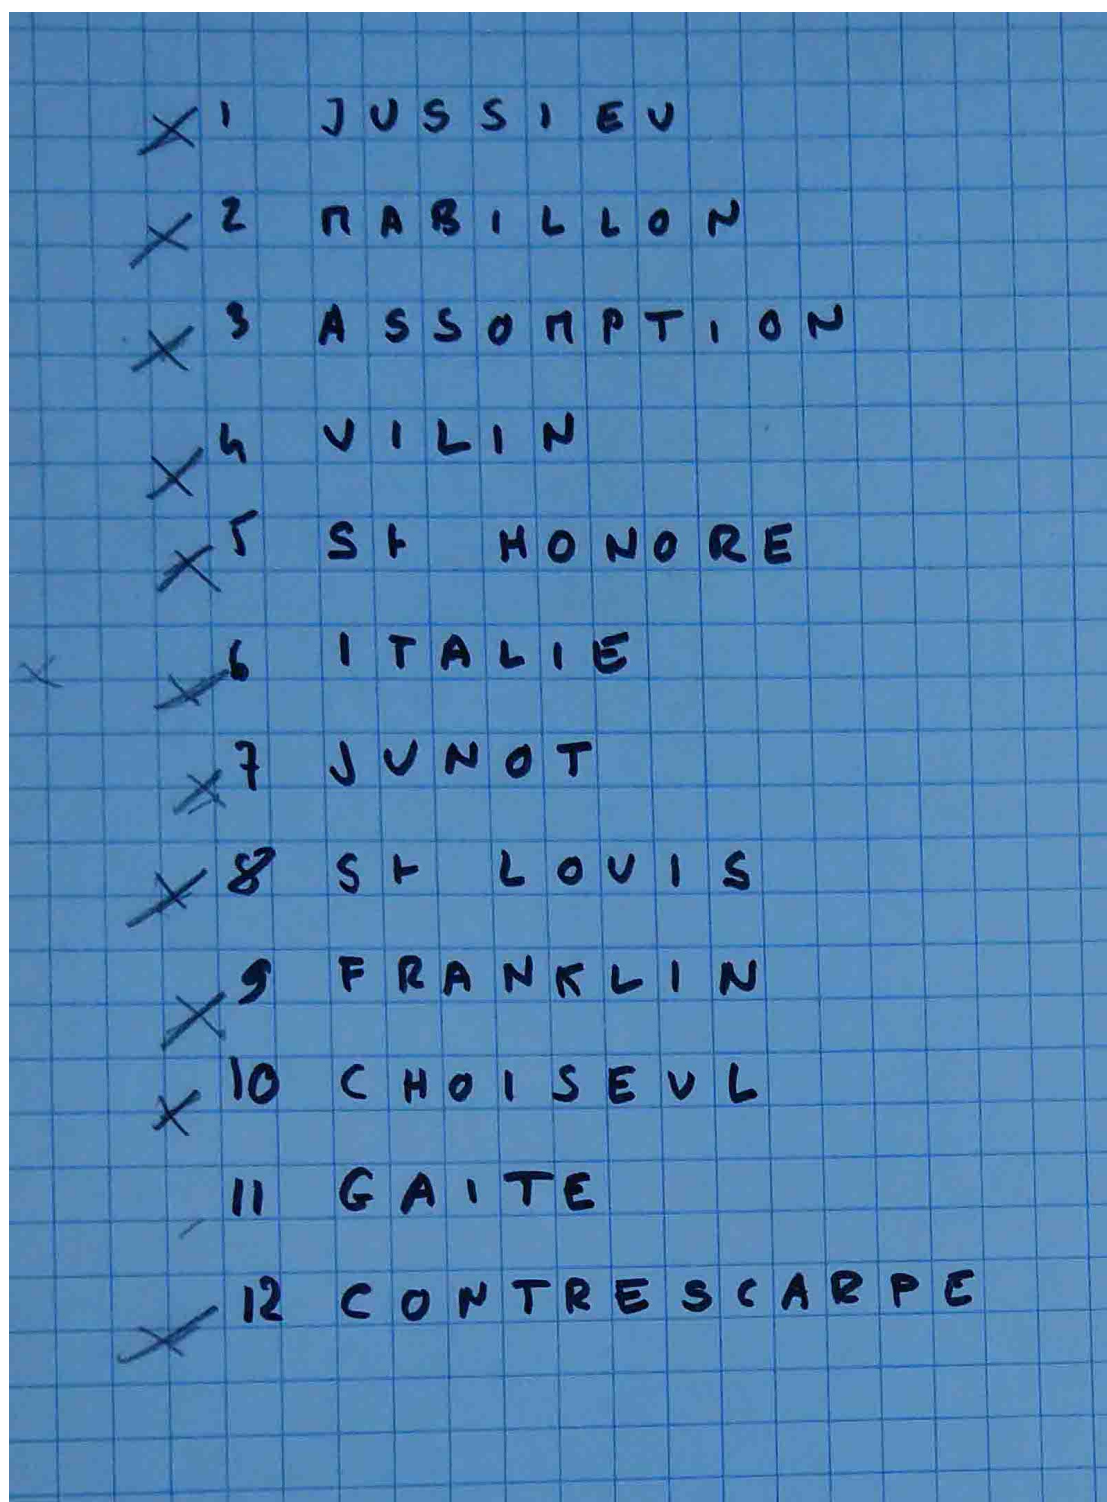 1 JUSSIEU
2 MABILLON
3 ASSOMPTION
4 VILIN
5 St HONORE
6 ITALIE
7 JUNOT
8 St LOUIS
9 FRANKLIN
10 CHOISEUL
11 GAITE
12 CONTRESCARPE